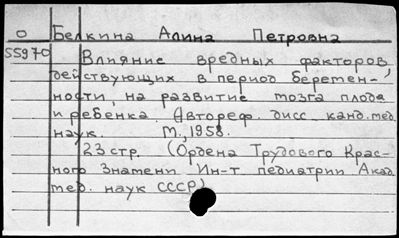 О Белкина Алина Петровна
55970 Влияние вредных факторов,
действующих в период беремен-
ности, на развитие мозга плода
и ребенка. Автореф. дисс. канд. мед.
наук. М., 1958.
23 стр. (Ордена Трудового Крас-
ного Знамени Ин-т педиатрии Акад.
мед. наук СССР)